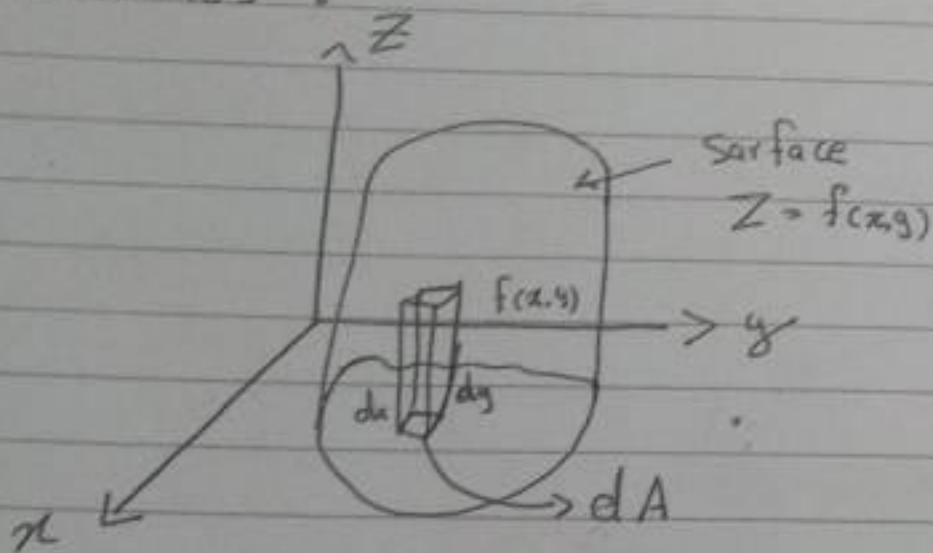 Z
Sarface
Z = f(x,y)
f(x,y)
y
dx
dy
dA
x